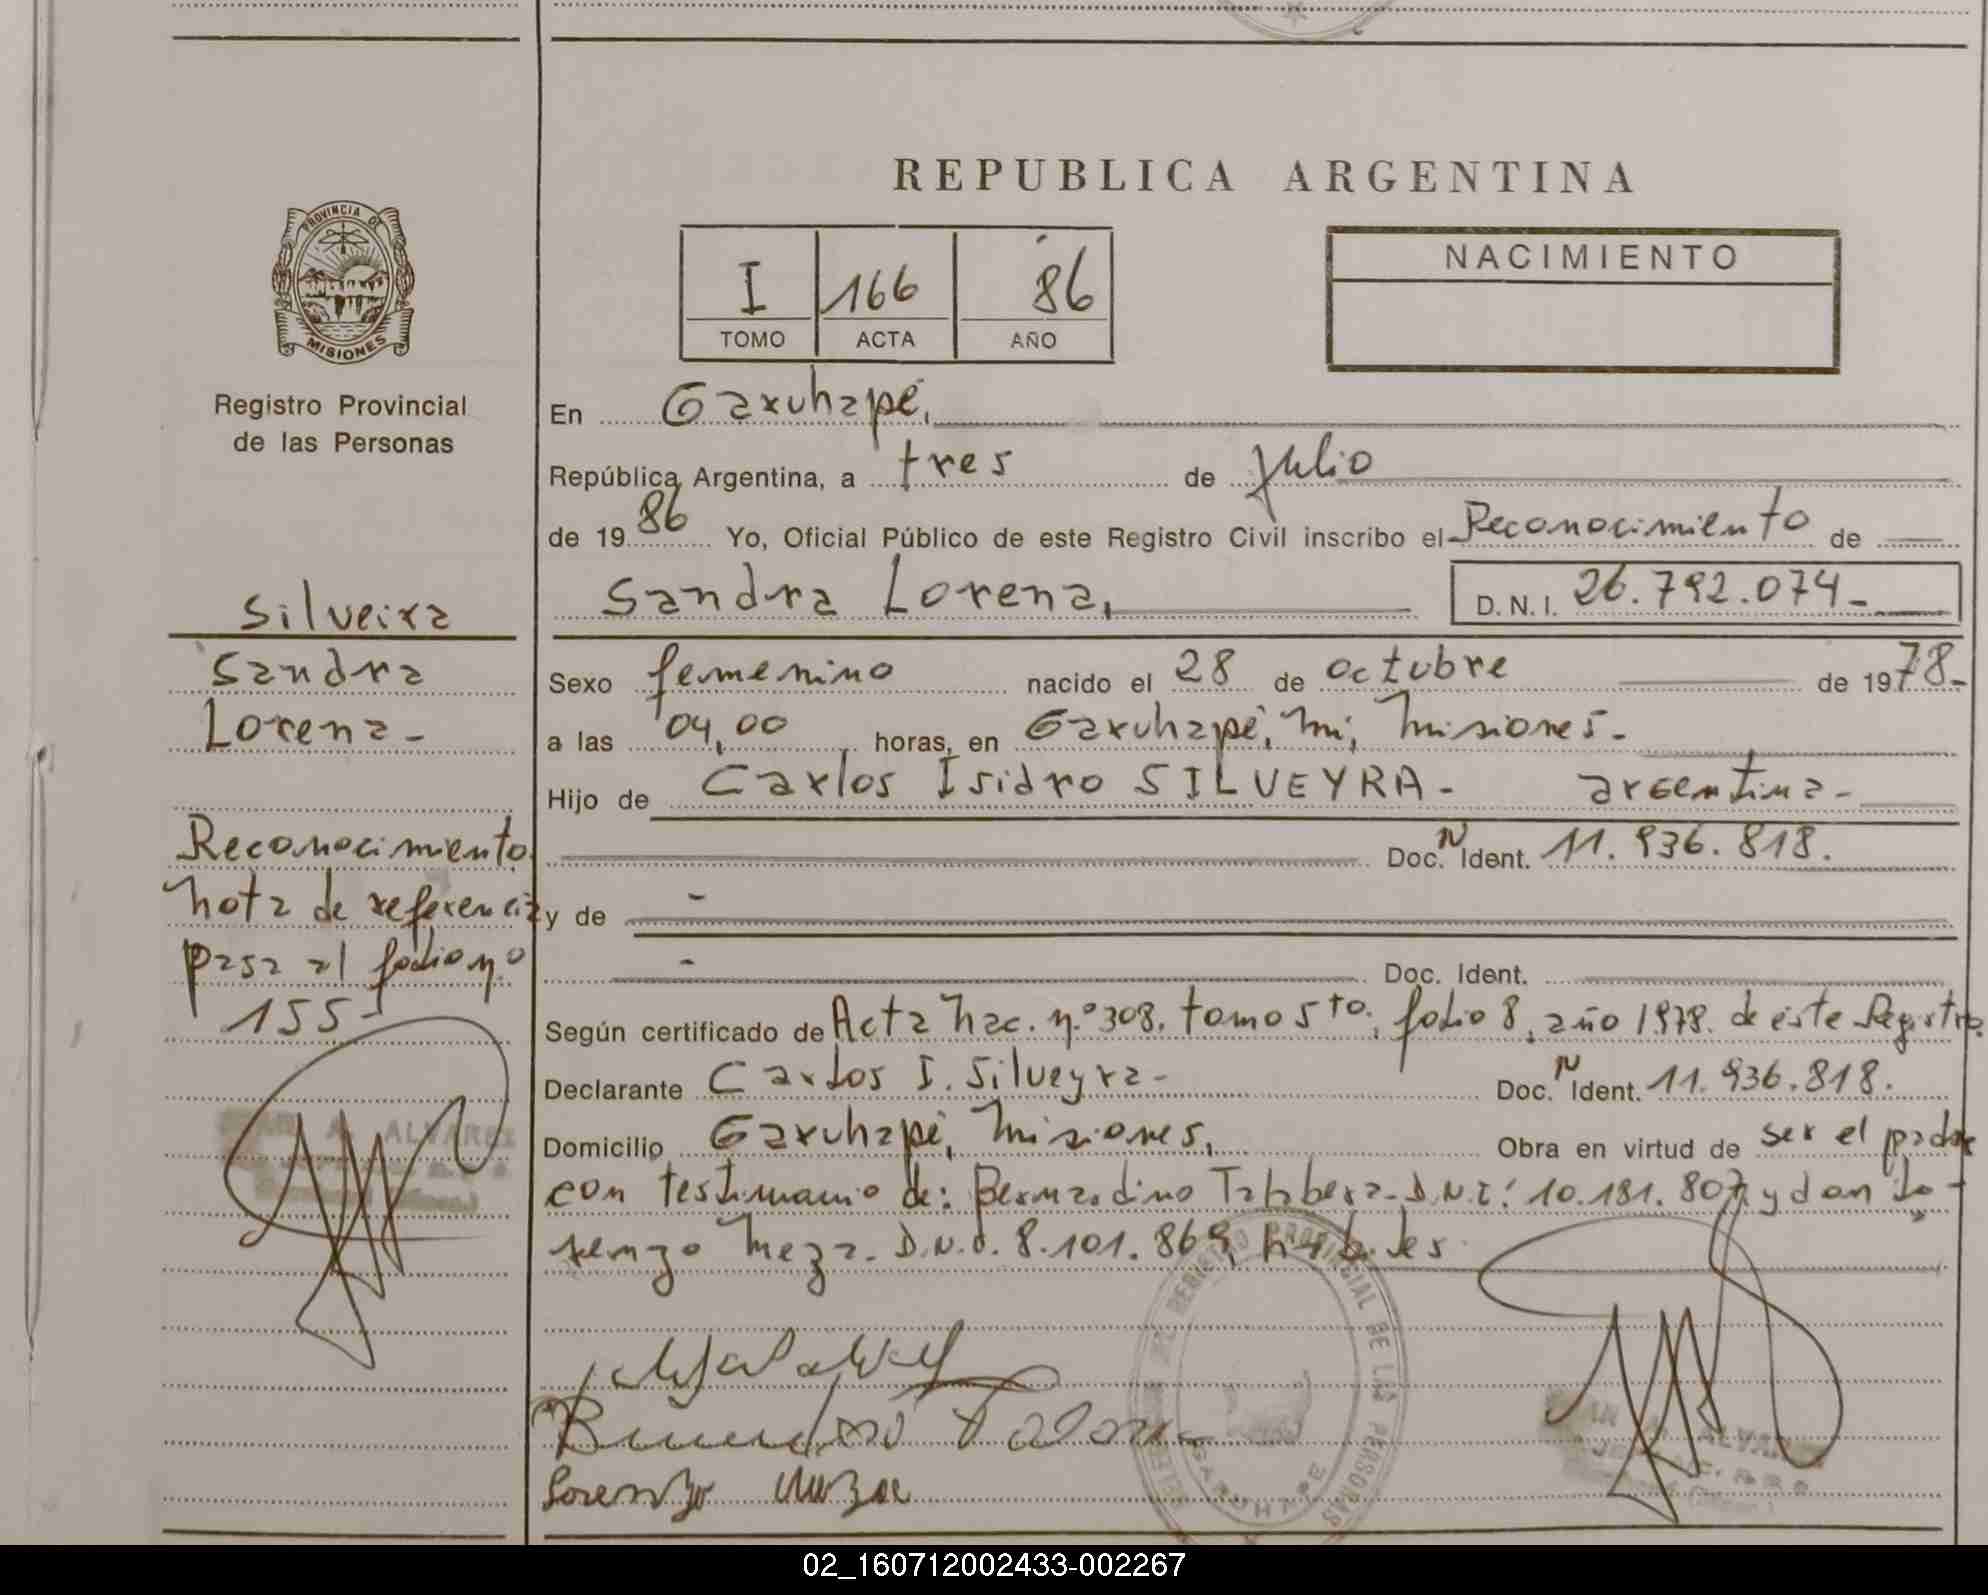 REPUBLICA ARGENTINA
PROVINCIA DE
MISIONES
Registro Provincial
de las Personas
I 166 86
TOMO ACTA AÑO
NACIMIENTO
En Garuhapé,
República Argentina, a tres de Julio
de 19 86 Yo, Oficial Público de este Registro Civil inscribo el Reconocimiento de
Sandra Lorena, D. N. I. 26.792.074-
Sexo femenino nacido el 28 de octubre de 1978-
a las 04,00 horas, en Garuhapé, Mi, Misiones.-
Hijo de Carlos Isidro SILVEYRA- argentina-
Doc. N Ident. 11.936.818.
y de -
- Doc. Ident.
Según certificado de Acta Nac. n.º 308. tomo 5to. folio 8, año 1978. de éste Registro.
Declarante Carlos I. Silveyra- Doc. N Ident. 11.936.818.
Domicilio Garuhapé, Misiones, Obra en virtud de ser el padre
con testimonio de: Bernardino D.N.I. 10.181.807 y don Lo-
renzo Meza- D.N.I. 8.101.869, hábiles
Silveira
Sandra
Lorena-
Reconocimiento
nota de referencia
pasa al folio n.º
155-
ALVAREZ
REGISTRO PROVINCIAL DE LAS PERSONAS
GARUHAPE
Lorenzo Meza
02_160712002433-002267